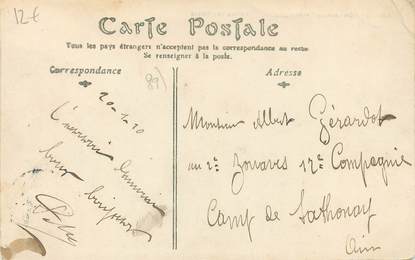 12€
Carte Postale
Tous les pays étrangers n'acceptent pas la correspondance au recto
Se renseigner à la poste.
Correspondance
Adresse
89
20-1-10
bons baisers
Monsieur Albert Gérardot
au 2e Zouaves 12e Compagnie
Camp de Sathonay
Ain